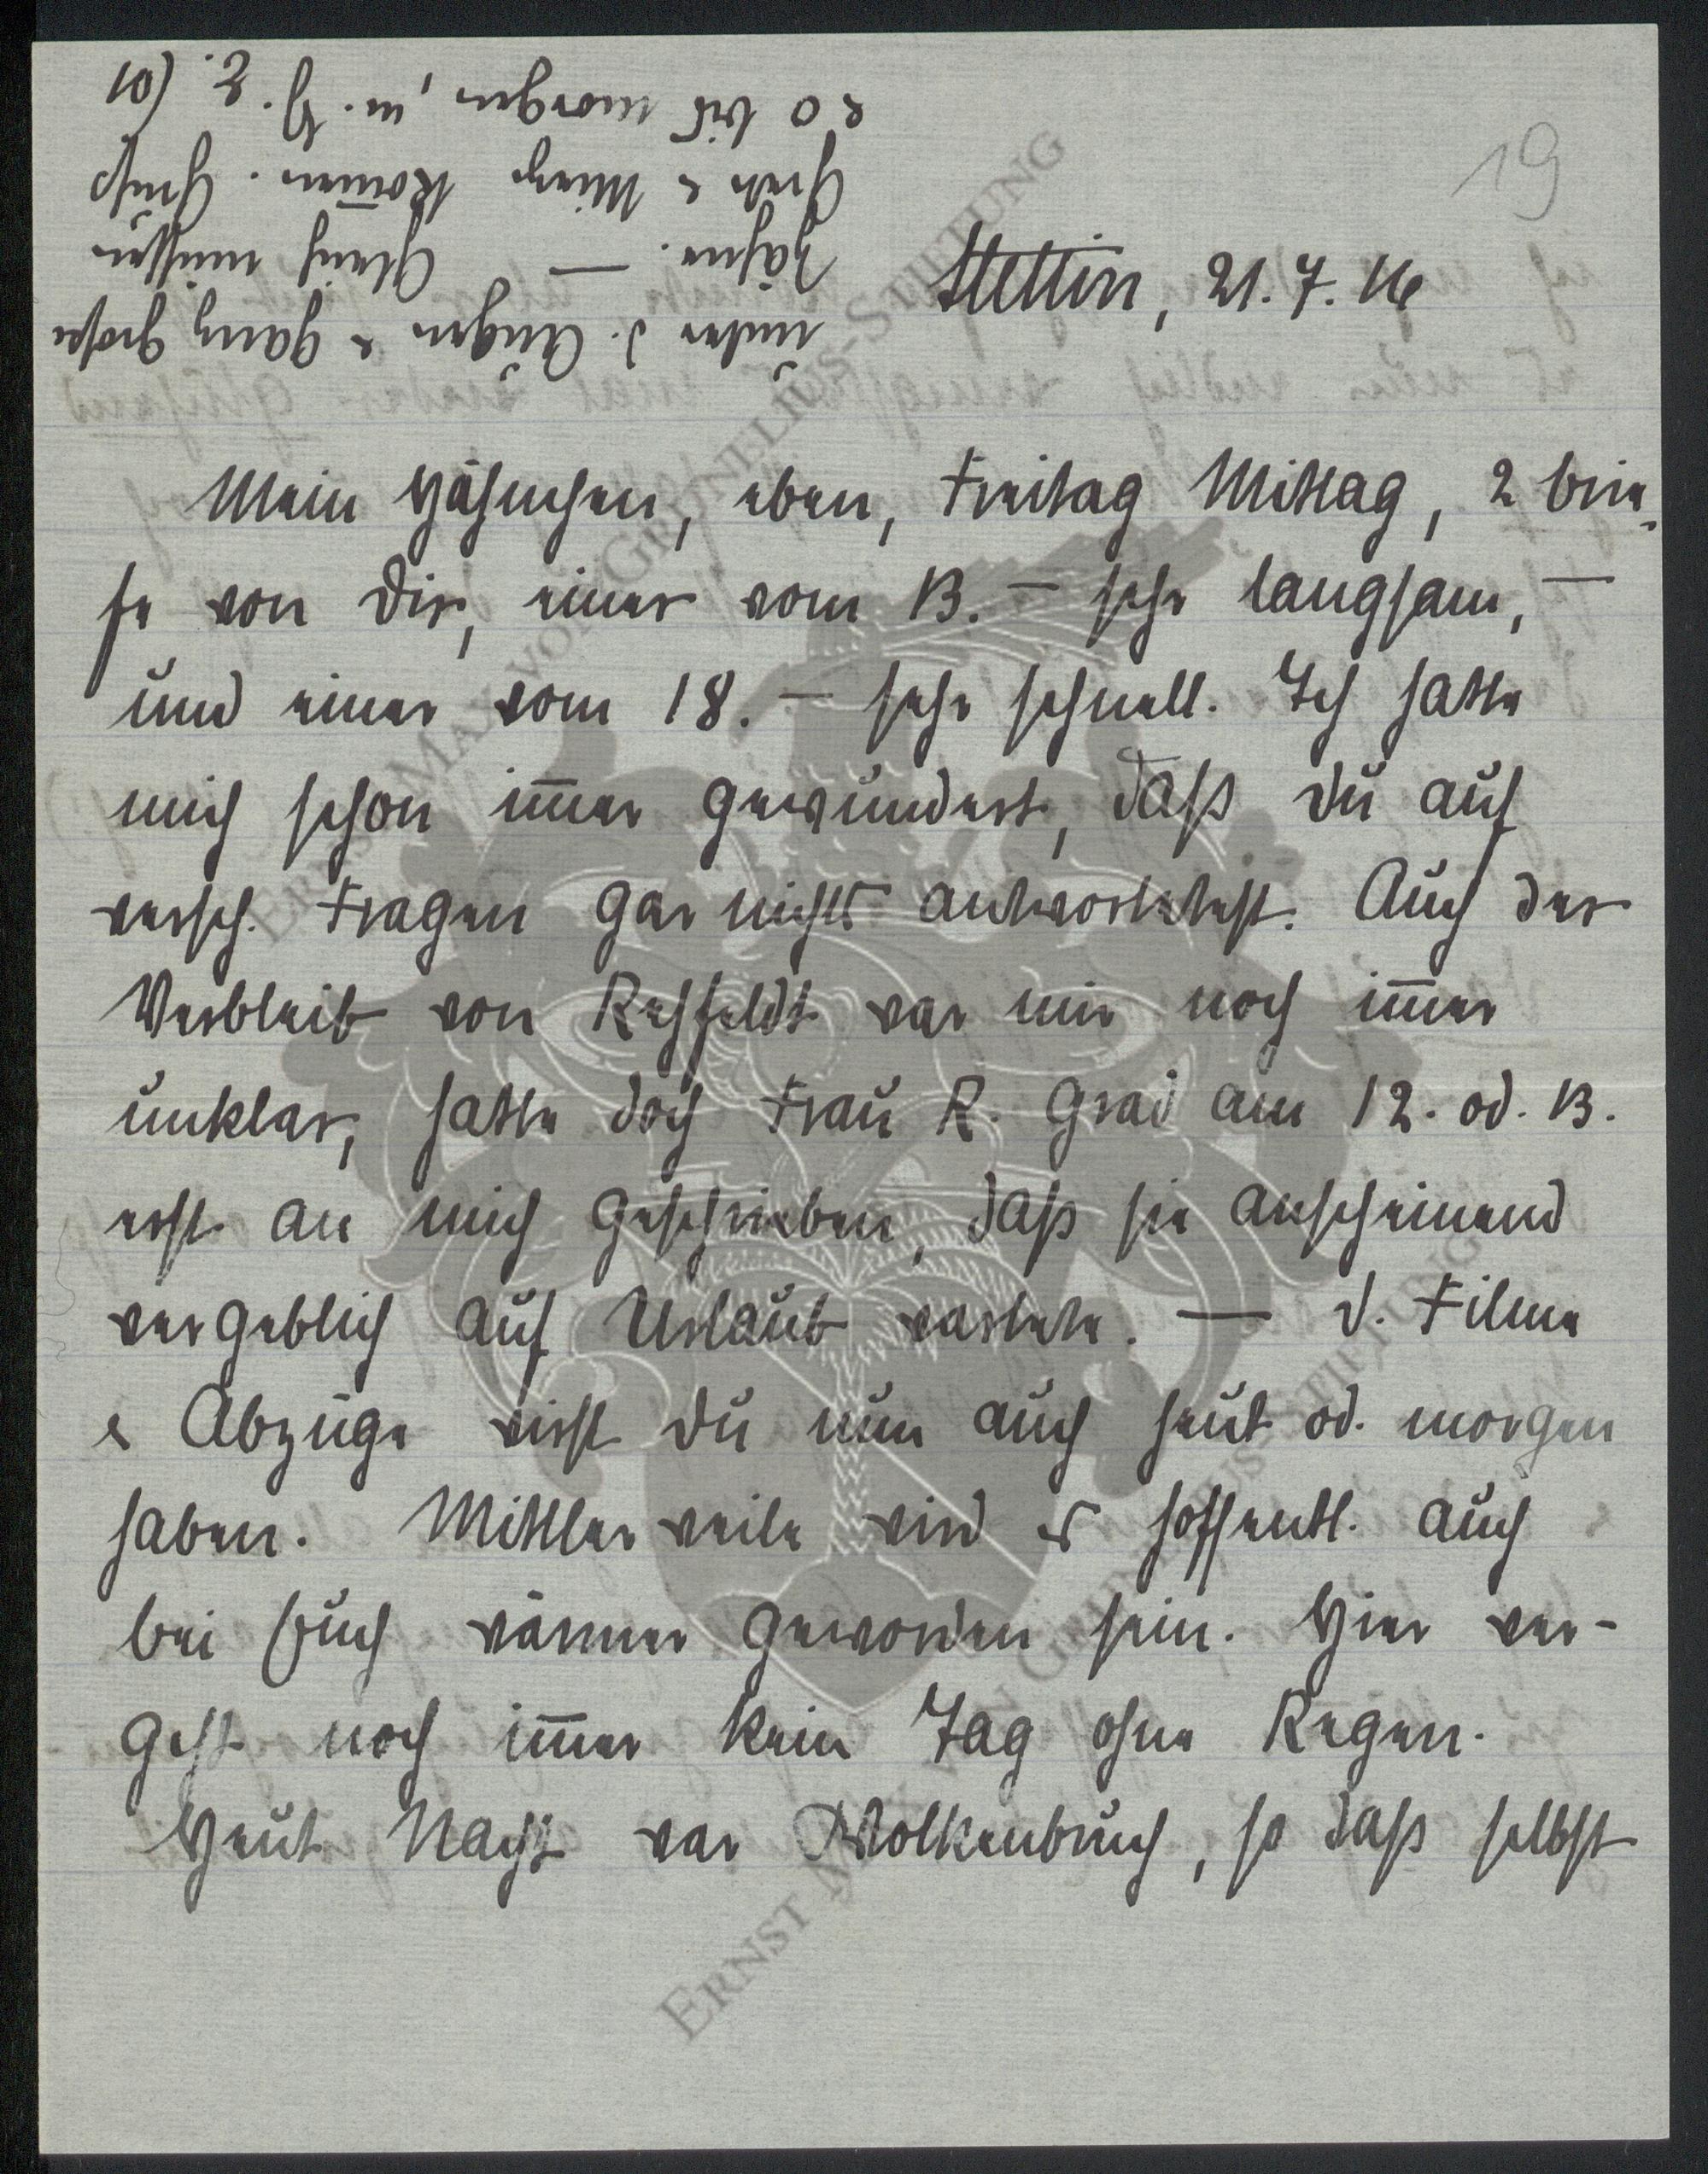 19
Stettin, 21.7.16
Mein Hähnchen, eben, Freitag Mittag, 2 Brie-
fe von Dir, einer vom 13. – sehr langsam, –
und einer vom 18. – sehr schnell. Ich hatte
mich schon immer gewundert, daß Du auf
versch. Fragen gar nichts antwortetest. Auch der
Verbleib von Rehfeldt war mir noch immer
unklar, hatte doch Frau R. grad am 12. od. 13.
erst an mich geschrieben, daß sie anscheinend
vergeblich auf Urlaub wartete. — D. Filme
& Abzüge wirst Du nun auch heut od. morgen
haben. Mittlerweile wird es hoffentl. auch
bei Euch wärmer geworden sein. Hier ver-
geht noch immer kein Tag ohne Regen.
Heut Nacht war Wolkenbruch, so daß selbst
unter d. Augen & ganz große
Zähne. — Gleich müssen
Grete & Mieze kommen. Gruß
& o bis morgen, m. H. D.
ERNST MAX VON GRUNELIUS-STIFTUNG
ERNST MAX VON GRUNELIUS-STIFTUNG